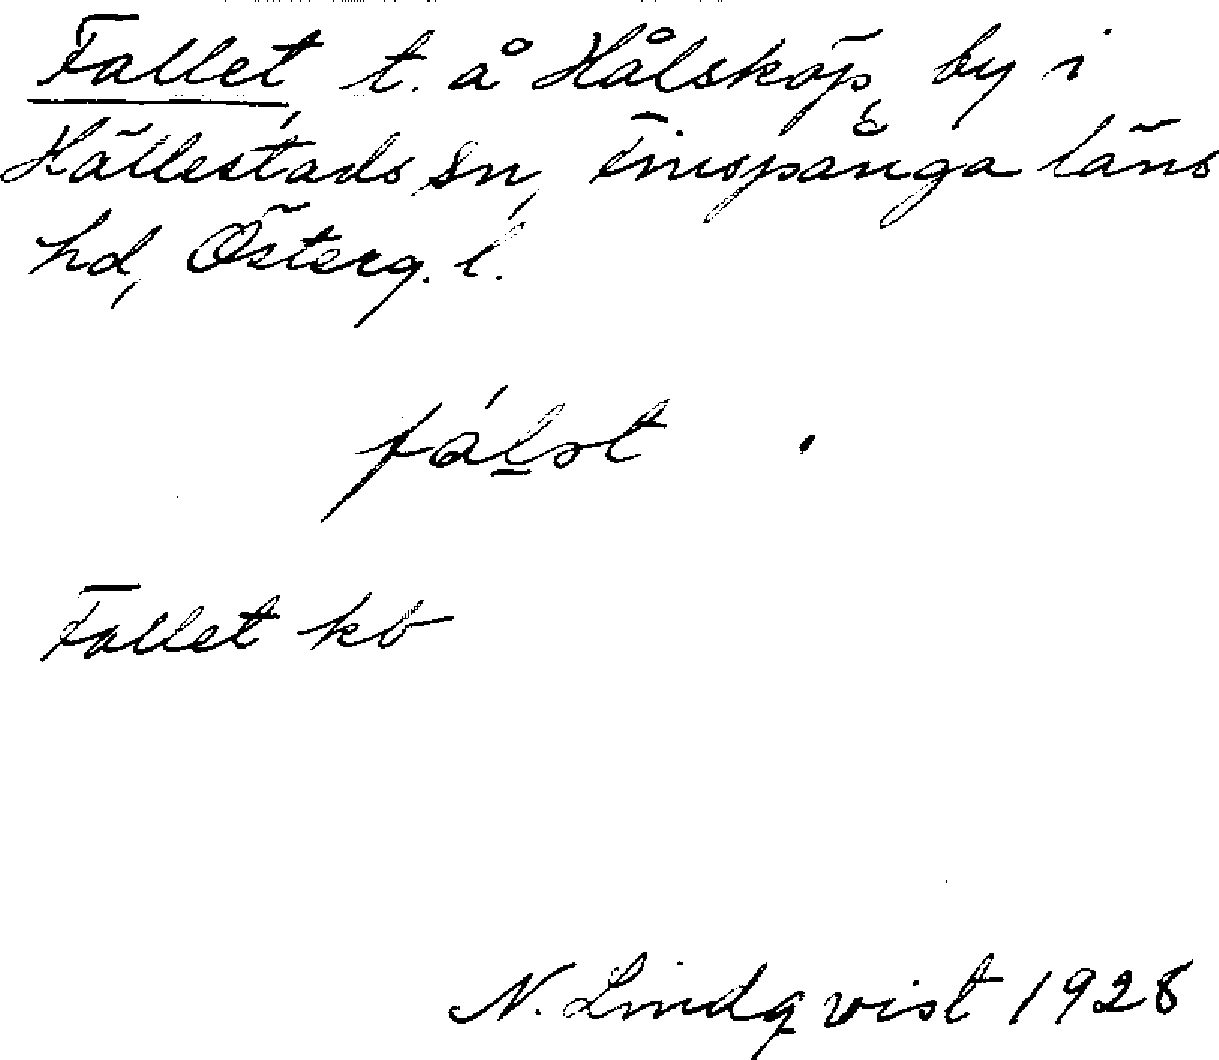 Fallet, t. å Hålsköp, by i
Hällestads sn, Finspånga läns
hd, Österg. l.
Fallet kb
N. Lindqvist 1928